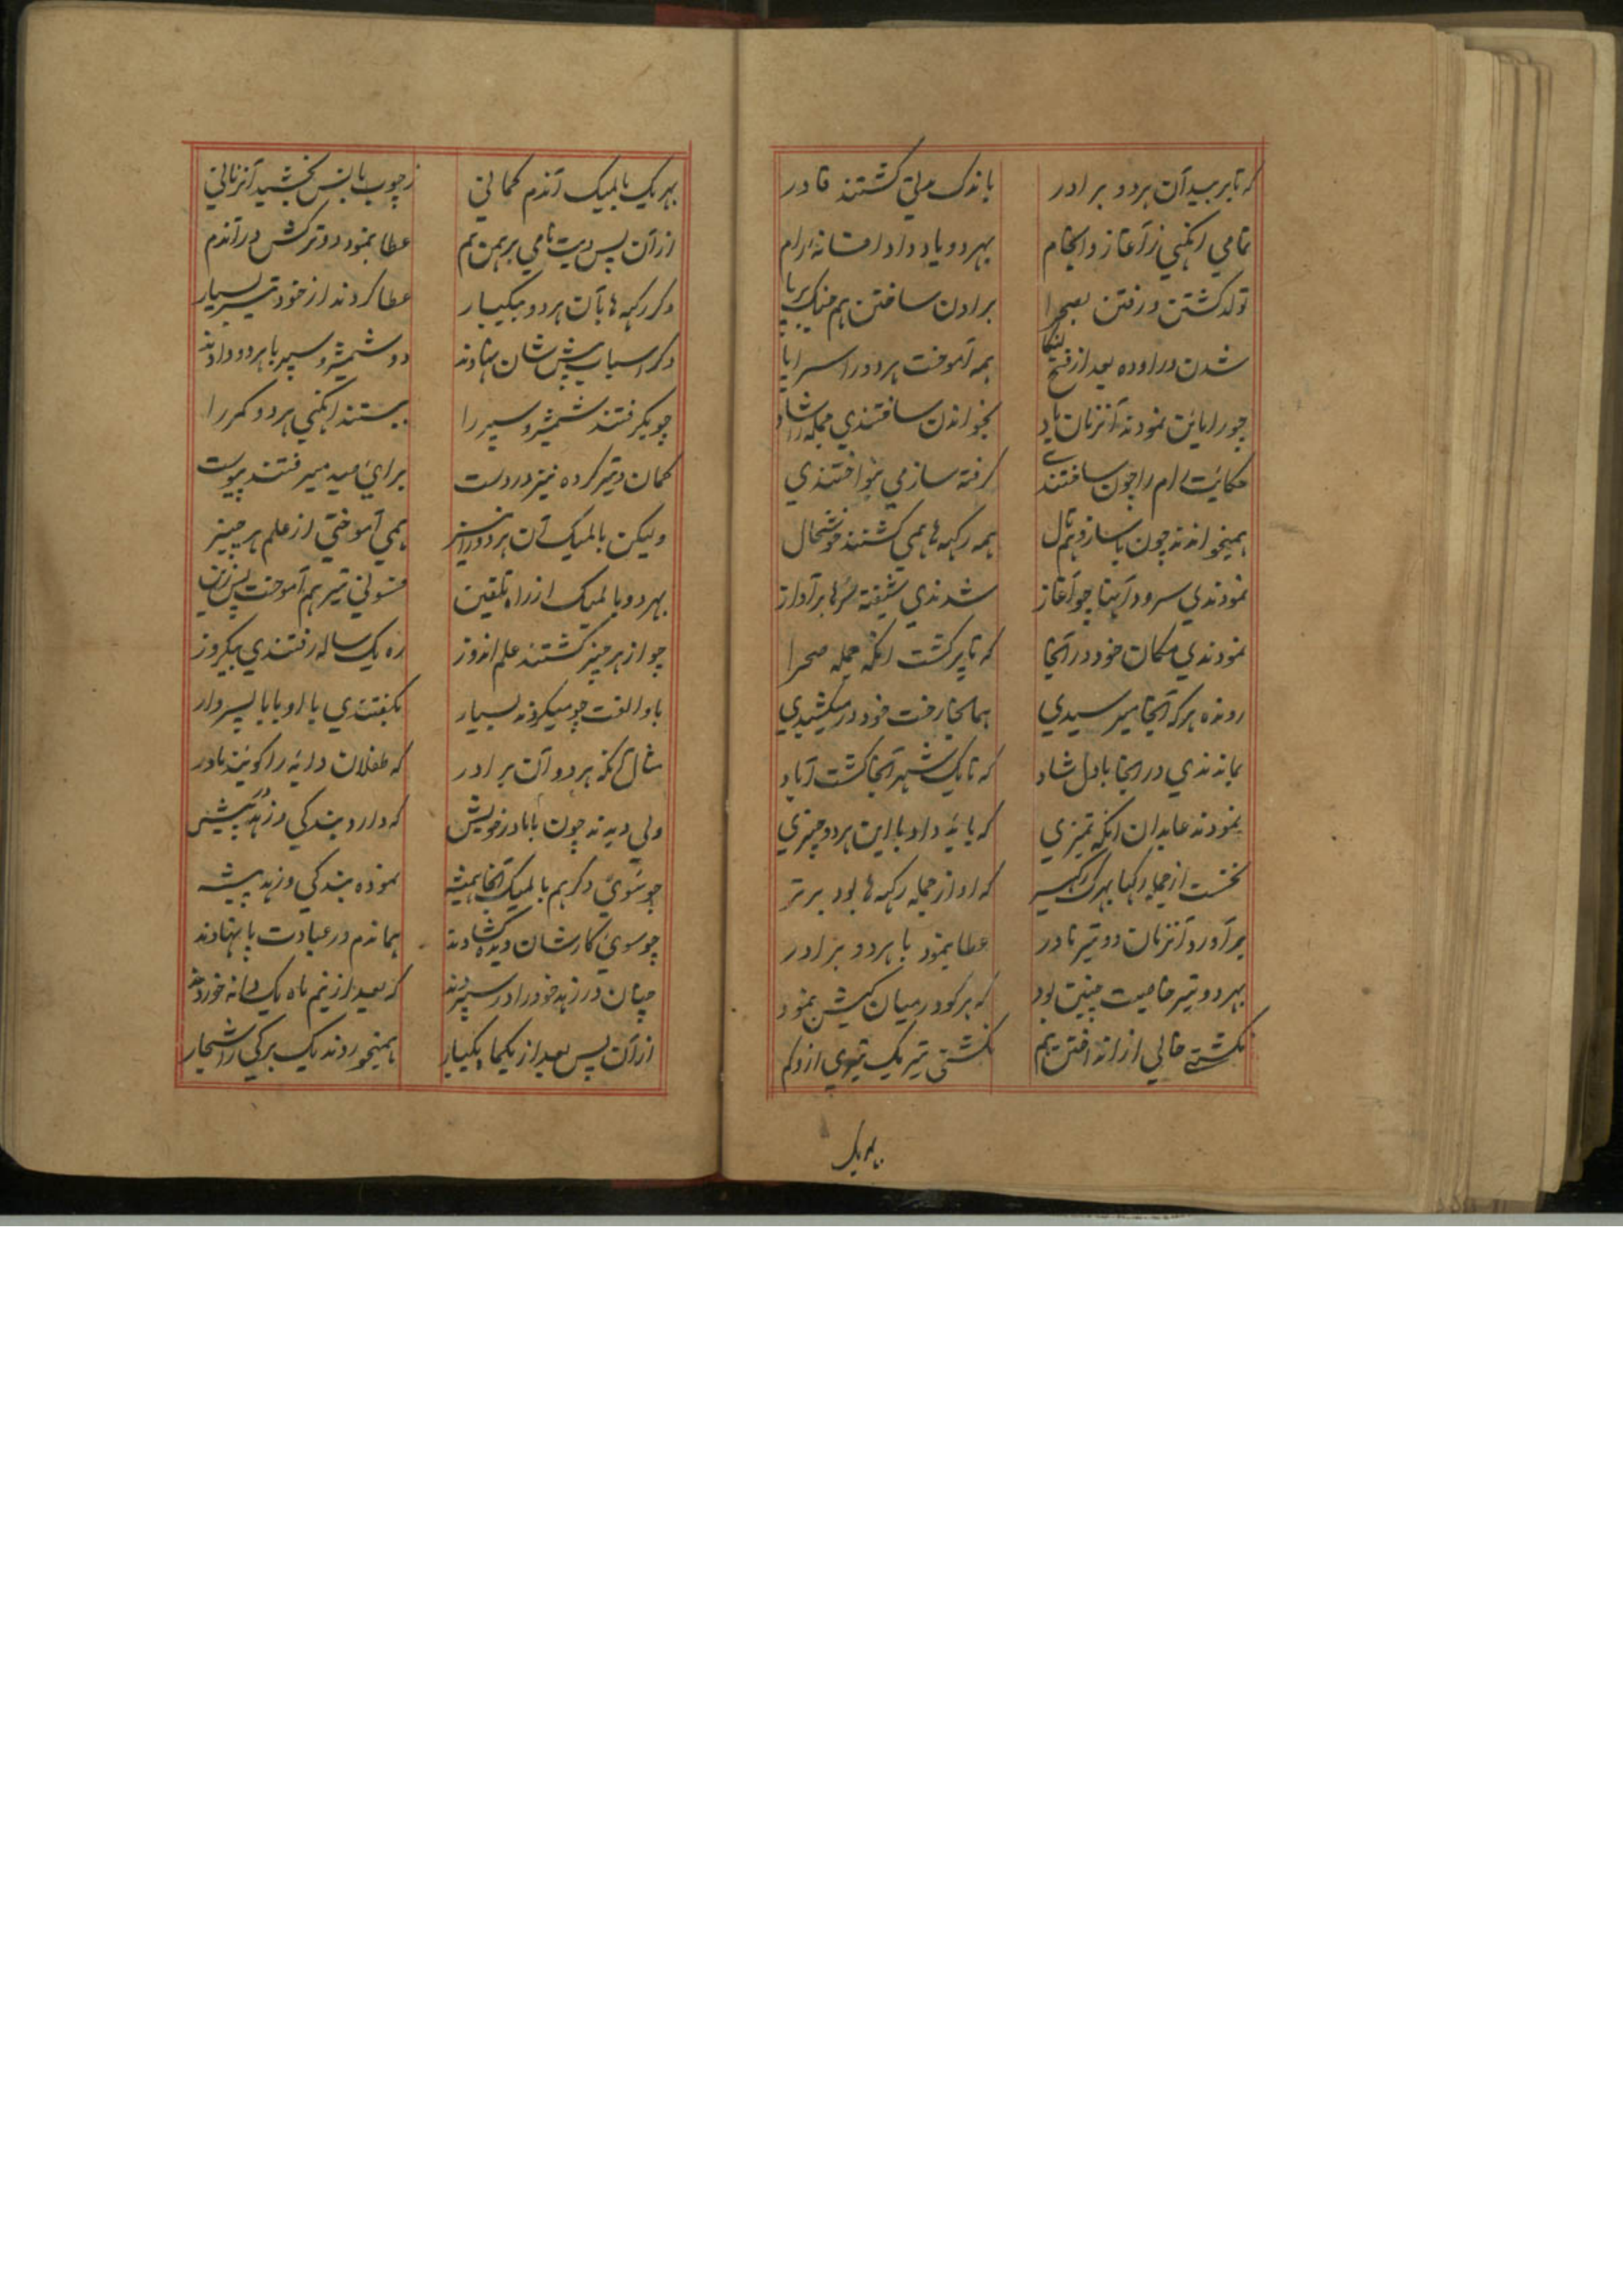 که تا بر بید آن هر دو برادر باندک مدتی گشتند قادر
تمامی انگهی ز آغاز و انجام بهر دو یاد داد افسانه رام
تولد گشتن و رفتن بصحرا برادن ساختن هم جنگ برپا
شدن در اوده بعد از فتح لنکا همه آموخت هر دو را سراپا
چو راماین نمودند آنزمان یاد بخواندن ساختندی جمله را شاد
حکایت رام را چون ساختندی گرفته ساز می بنواختندی
همیخواندند چون با ساز و هم تال همه رکهه ها همی گشتند خوشحال
نمودندی سرود آنها چو آغاز شدندی شیفته بر آواز
نمودندی مکان خود در آنجا که تا پر گشت انگه جمله صحرا
رونده هر که آنجا میرسیدی همانجا رخت خود در میکشیدی
بماندندی در آنجا با دل شاد که تا یک شهر آنجا گشت آباد
نمودند عابدان انگه تمیزی که باید داد با این هر دو چیزی
نخست از جمله رکهها که او از جمله رکهه ها بود برتر
برآورد آنزمان دو تیر نادر عطا بنمود با هر دو برادر
بهر دو تیر خاصیت چنین بود که هر کو در میان کیش بنمود
نگشتی خالی از انداختن هم نگشتی تیر یک تیری ازو کم
بهریک
بهریک بالمیک آندم کمانی ز چوب بانس بخشید آنزمانی
از آن پس دیت نامی برهمن هم عطا بنمود دو ترکش در آندم
دگر رکهه ها بآن هر دو بیکبار عطا کردند از خود تیر بسیار
دگر اسباب پیش شان نهادند دو شمشیر و سپر با هر دو دادند
چو بگرفتند شمشیر و سپر را ببستند انگهی هر دو کمر را
کمان و تیر کرده نیز در دست برای صید میرفتند پیوست
ولیکن بالمیک آن هر دو را نیز همی آموختی از علم هر چیز
بهر دو بالمیک از راه تلقین فسونی تیر هم آموخت پس زین
چو از هر چیز گشتند علم اندوز ره یک ساله رفتندی بیکروز
باو الفت چو میکردند بسیار بگفتندی باو بابا پسروار
مثال آنکه هر دو آن برادر که طفلان دایه را گویند مادر
ولی دیدند چون با مادر خویش که دارد بندگی و زهد در پیش
چو سوی دگر هم بالمیک آنجا همیشه نموده بندگی و زهد پیشه
چو سوی کارشان دیده گشادند هماندم در عبادت پا نهادند
چنان در زهد خود را در سپردند که بعد از نیم ماه یک دانه خوردند
از آن پس بعد از یکماه یکبار همیخوردند یک برگی ز اشجار